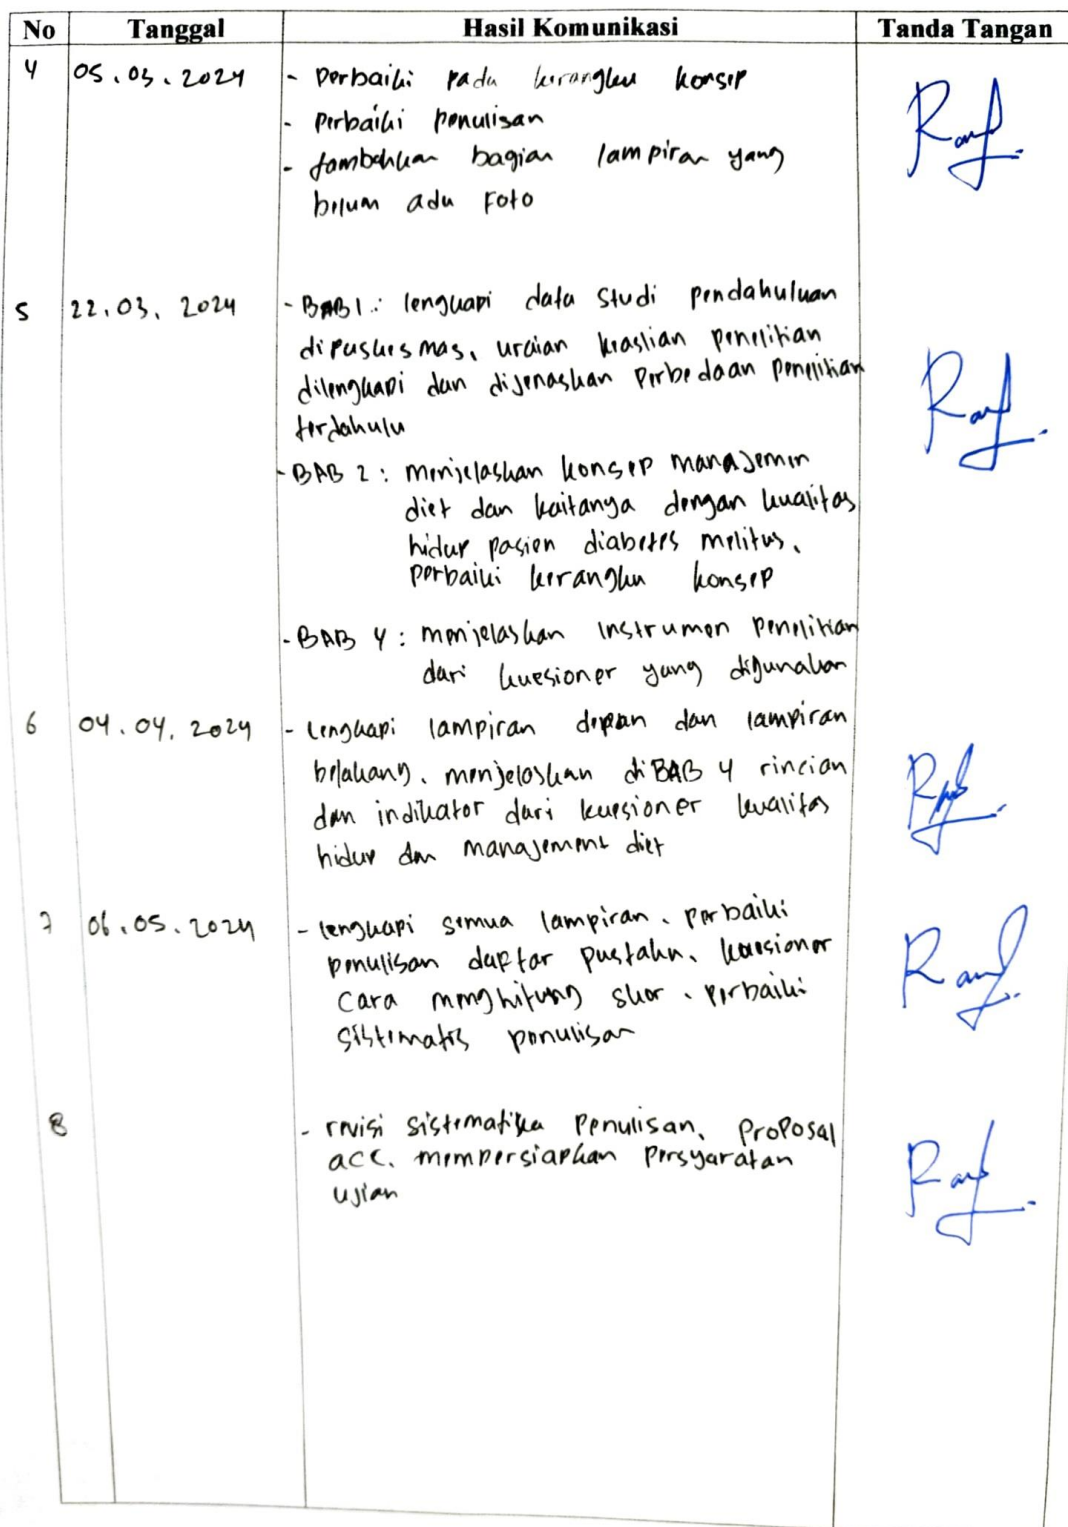 No Tanggal Hasil Komunikasi Tanda Tangan
4 05.03.2024 - Perbaiki pada kerangka konsep
- Perbaiki penulisan
- tambahkan bagian lampiran yang
belum ada Foto
5 22.03.2024 - BAB 1 : lengkapi data studi pendahuluan
dipuskesmas, uraian keaslian penelitian
dilengkapi dan dijenaskan Perbedaan Penelitian
terdahulu
- BAB 2 : menjelaskan konsep manajemen
diet dan kaitanya dengan kualitas
hidup pasien diabetes melitus,
perbaiki kerangka konsep
- BAB 4 : menjelaskan instrumen Penelitian
dari kuesioner yang digunakan
6 04.04.2024 - lengkapi lampiran depan dan lampiran
belakang, menjelaskan di BAB 4 rincian
dan indikator dari kuesioner kualitas
hidup dan manajement diet
7 06.05.2024 - lengkapi semua lampiran, perbaiki
penulisan daptar pustaka, kuesioner
cara menghitung skor, perbaiki
sistimatis penulisan
8 - revisi sistematika Penulisan, ProPosal
acc, mempersiapkan Persyaratan
ujian